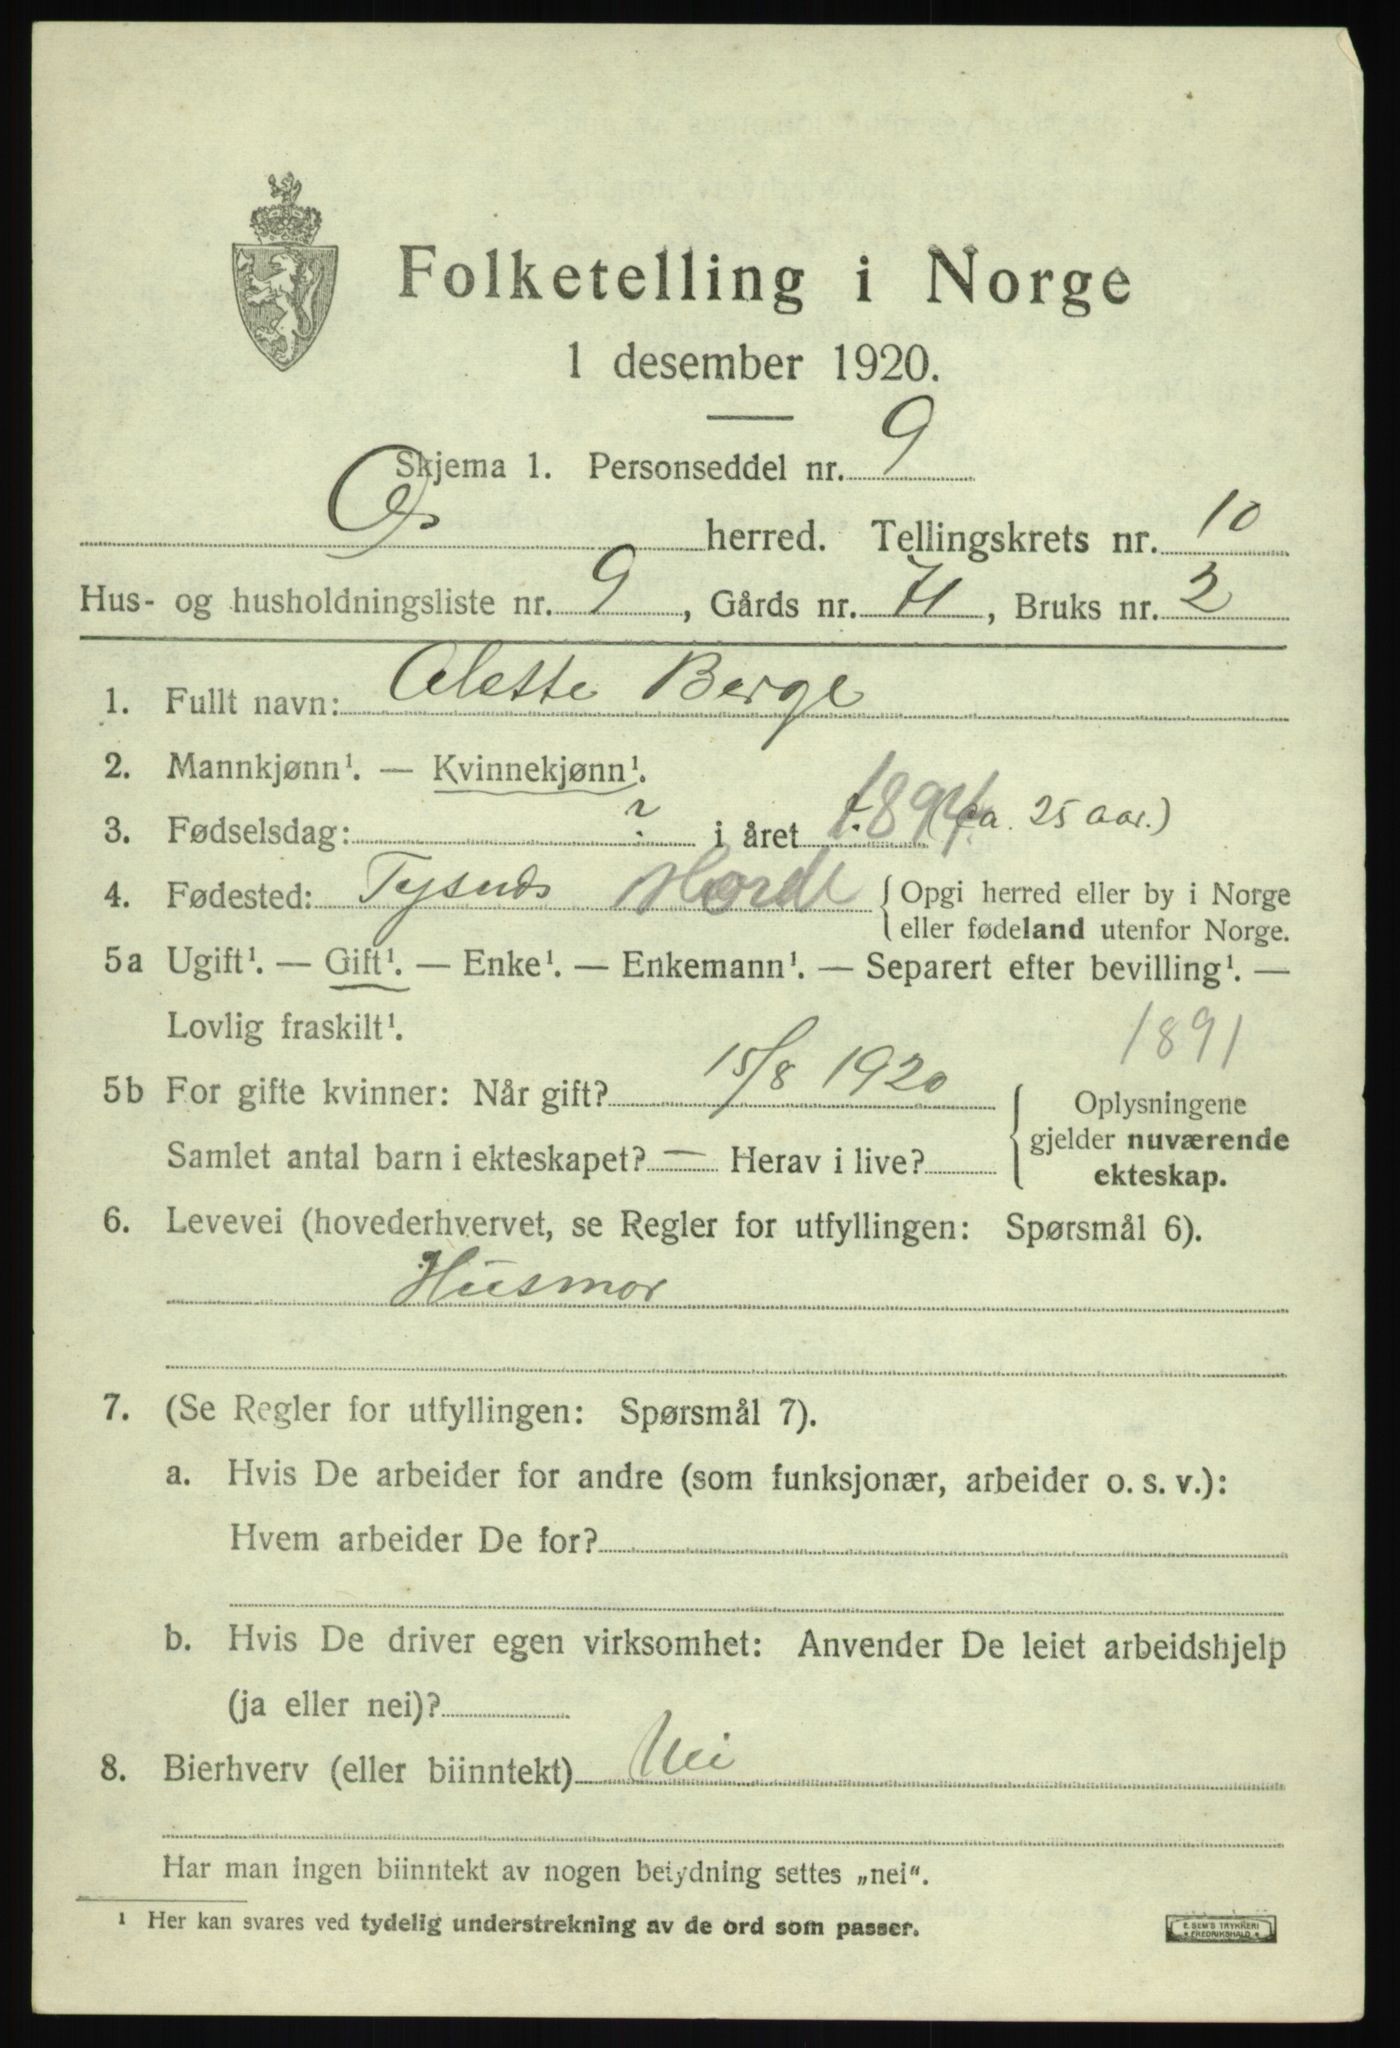 Folketelling i Norge
1 desember 1920.
Skjema 1. Personseddel nr. 9
Os herred. Tellingskrets nr. 10
Hus- og husholdningsliste nr. 9, Gårds nr. 71, Bruks nr. 2
1. Fullt navn: Berge
2. Mannkjønn¹. — Kvinnekjønn¹.
3. Fødselsdag: ? i året 1894. (ca. 25 aar.)
4. Fødested: Tysnes Hordl {Opgi herred eller by i Norge
eller fødeland utenfor Norge.
5a Ugift¹. — Gift¹. — Enke¹. — Enkemann¹. — Separert efter bevilling¹. —
Lovlig fraskilt¹. 1891
5b For gifte kvinner: Når gift? 15/8 1920 {Oplysningene
gjelder nuværende
Samlet antal barn i ekteskapet? — Herav i live?
ekteskap.
6. Levevei (hovederhvervet, se Regler for utfyllingen: Spørsmål 6).
Husmor
7. (Se Regler for utfyllingen: Spørsmål 7).
a. Hvis De arbeider for andre (som funksjonær, arbeider o. s. v.):
Hvem arbeider De for?
b. Hvis De driver egen virksomhet: Anvender De leiet arbeidshjelp
(ja eller nei)?
8. Bierhverv (eller biinntekt) Nei
Har man ingen biinntekt av nogen betydning settes „nei“.
¹ Her kan svares ved tydelig understrekning av de ord som passer.
E. SEM'S TRYKKERI
FREDRIKSHALD